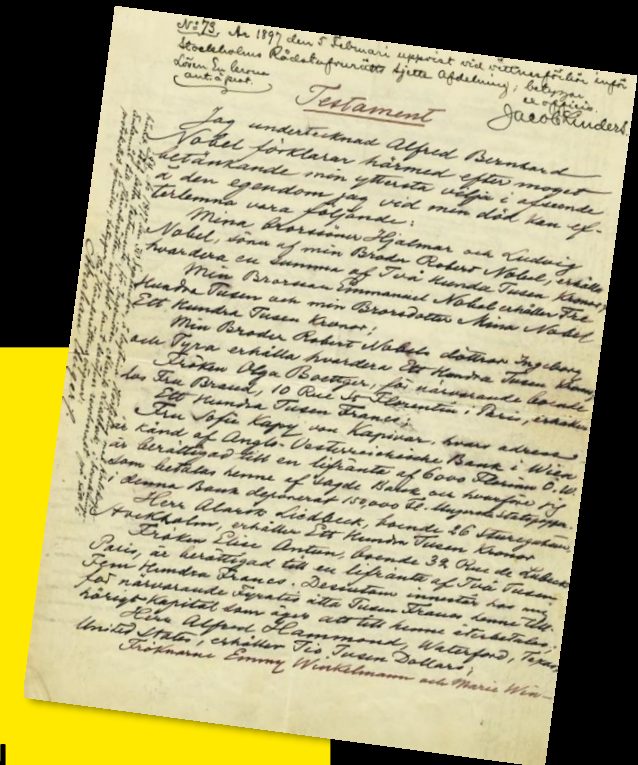 No 73. År 1897 den 5 Februari uppvist vid vittnesförhör inför
Stockholms Rådstufvurätts sjette Afdelning; betygar
Lösen En krona ex officio.
Jacob Linders
Testament
Jag undertecknad Alfred Bernhard
Nobel förklarar härmed efter moget
betänkande min yttersta vilja i afseende
å den egendom jag vid min död kan ef-
terlemna vara följande:
Mina Brorsöner Hjalmar och Ludvig
Nobel, söner af min Broder Robert Nobel, erhålla
hvardera en summa af Två Hundra Tusen Kronor;
Min Brorson Emmanuel Nobel erhåller Tre
Hundra Tusen och min Brorsdotter Mina Nobel
Ett Hundra Tusen Kronor;
Min Broder Robert Nobels döttrar Ingeborg
och Tyra erhålla hvardera Ett Hundra Tusen Kronor;
Fröken Olga Boettger, för närvarande boende
hos Fru Brand, 10 Rue St Florentin i Paris, erhåller
Ett Hundra Tusen Francs;
Fru Sofie Kapy von Kapivar, hvars adress
är känd af Anglo-Oesterreichische Bank i Wien
är berättigad till en lifränta af 6000 Florins Ö.W.
som betalas henne af sagde Bank och hvarföre jag
i denna Bank deponerat 150,000 Fl.
Herr Alarik Liedbeck, boende 26 Sturegatan,
Stockholm, erhåller Ett Hundra Tusen Kronor
Fröken Elise Antun, boende 32 Rue de Lubeck
Paris, är berättigad till en lifränta af Två Tusen
Fem Hundra Francs. Dessutom innestår hos mig
för närvarande Fyratio åtta Tusen Francs henne till-
hörigt Kapital som äger att till henne återbetalas;
Herr Alfred Hammond, Waterford, Texas,
United States, erhåller Tio Tusen Dollars;
Fröknarne Emmy Winkelmann och Marie Win-